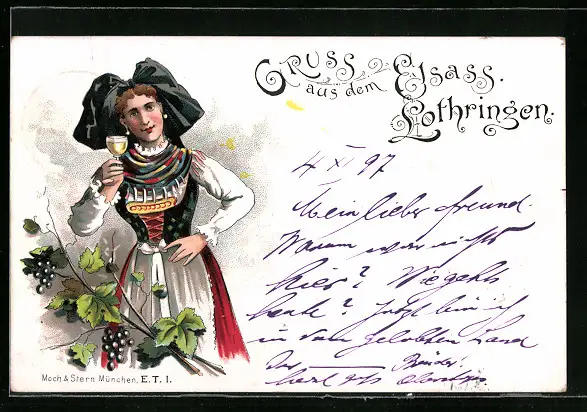 Gruss
aus dem Elsass.
Lothringen.
4 XI 97
Mein lieber Freund.
Warum
hier? Wie gehts
heute? Jetzt bin ich
in dem gelobten Land
Moch & Stern München, E. T. I.